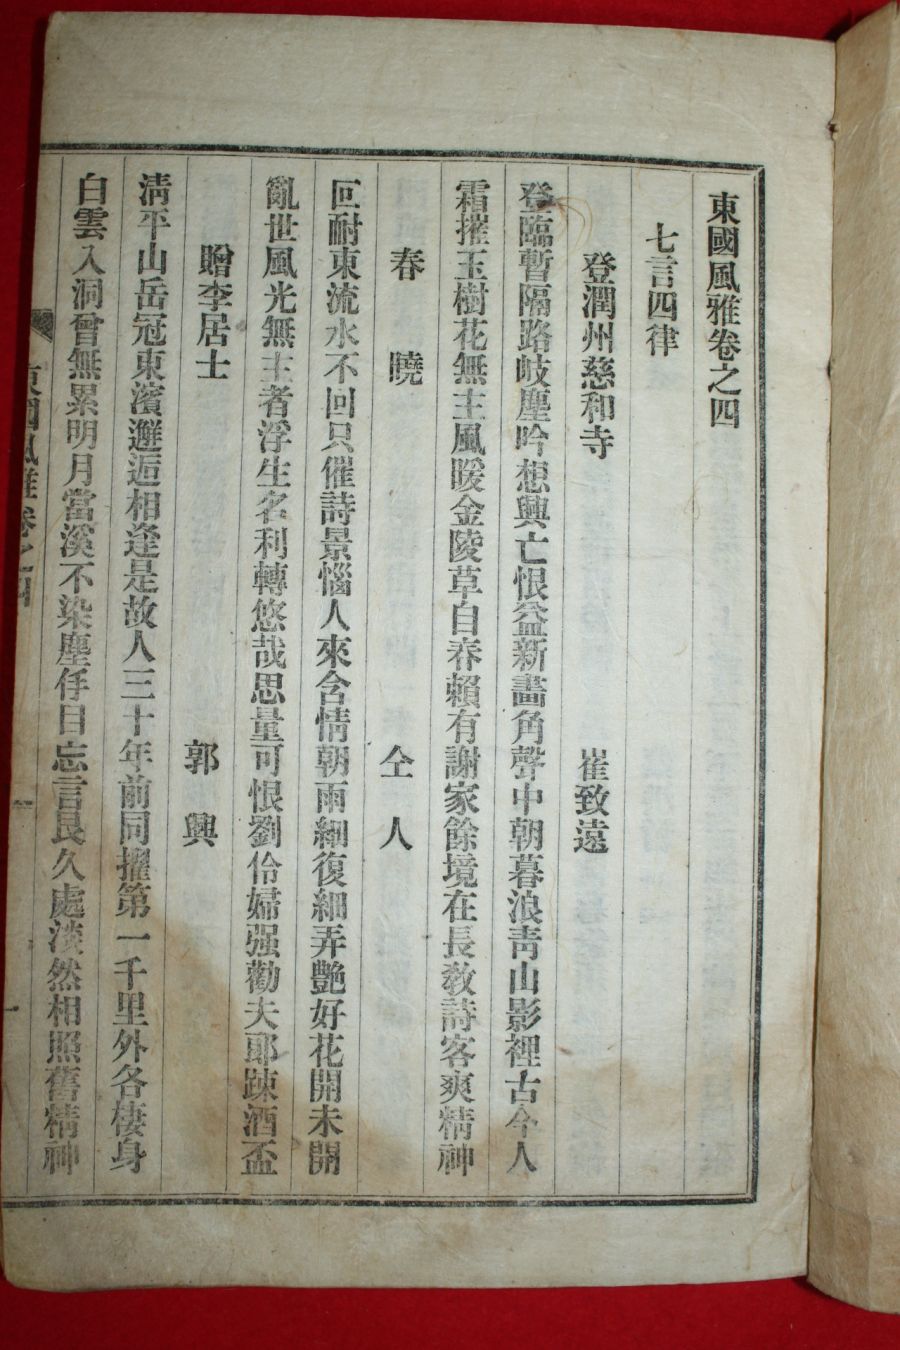 東國風雅卷之四
七言四律
登潤州慈和寺 崔致遠
登臨暫隔路岐塵吟想興亡恨益新畵角聲中朝暮浪靑山影裡古今人
霜摧玉樹花無主風暖金陵草自春賴有謝家餘境在長敎詩客爽精神
春曉 仝人
叵耐東流水不回只催詩景惱人來含情朝雨細復細弄艶好花開未開
亂世風光無主者浮生名利轉悠哉思量可恨劉伶婦强勸夫郞踈酒盃
贈李居士 郭興
淸平山岳冠東濱邂逅相逢是故人三十年前同擢第一千里外各棲身
白雲入洞曾無累明月當溪不染塵伻日忘言良久處淡然相照舊精神
東國風雅卷之四 一